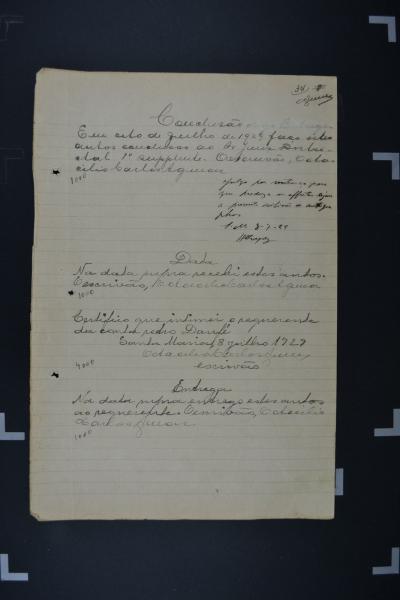 34
Conclusão
Em oito de julho de 1929 faço estes
autos conclusos ao Sr. Juiz Distri-
ctal 1º supplente. O escrivão, Octa-
cilio Carlos
1000
Julgo por sentença para
que produza os effeitos
a presente
8-7-29
Data
Na data supra recebi estes autos.
O escrivão, Octacilio Carlos
1000
Certifico que intimei o requerente
da conta Pedro
Santa Maria, 8 julho 1929
Octacilio Carlos
escrivão
4000
Entrega
Na data supra entrego estes autos
ao requerente. O escrivão, Octacilio
Carlos
1000